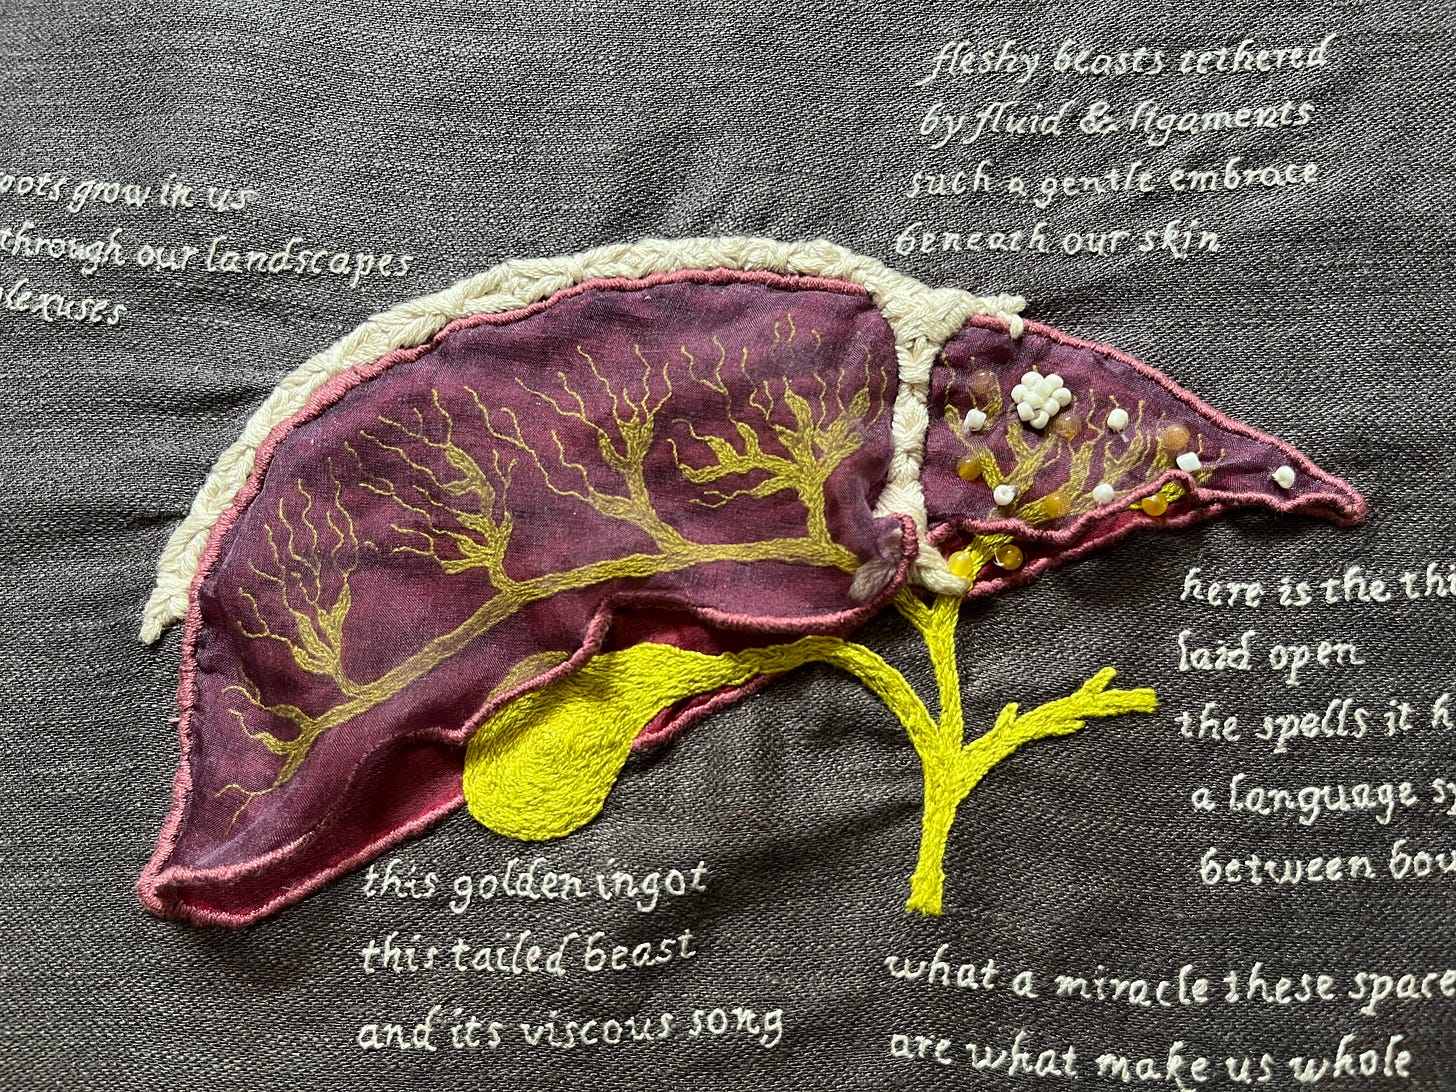 fleshy beasts tethered
by fluid & ligaments
such a gentle embrace
beneath our skin
grow in us
through our landscapes
here is the
laid open
the spells it
a language
between
this golden ingot
this tailed beast
and its viscous song
what a miracle these
are what make us whole